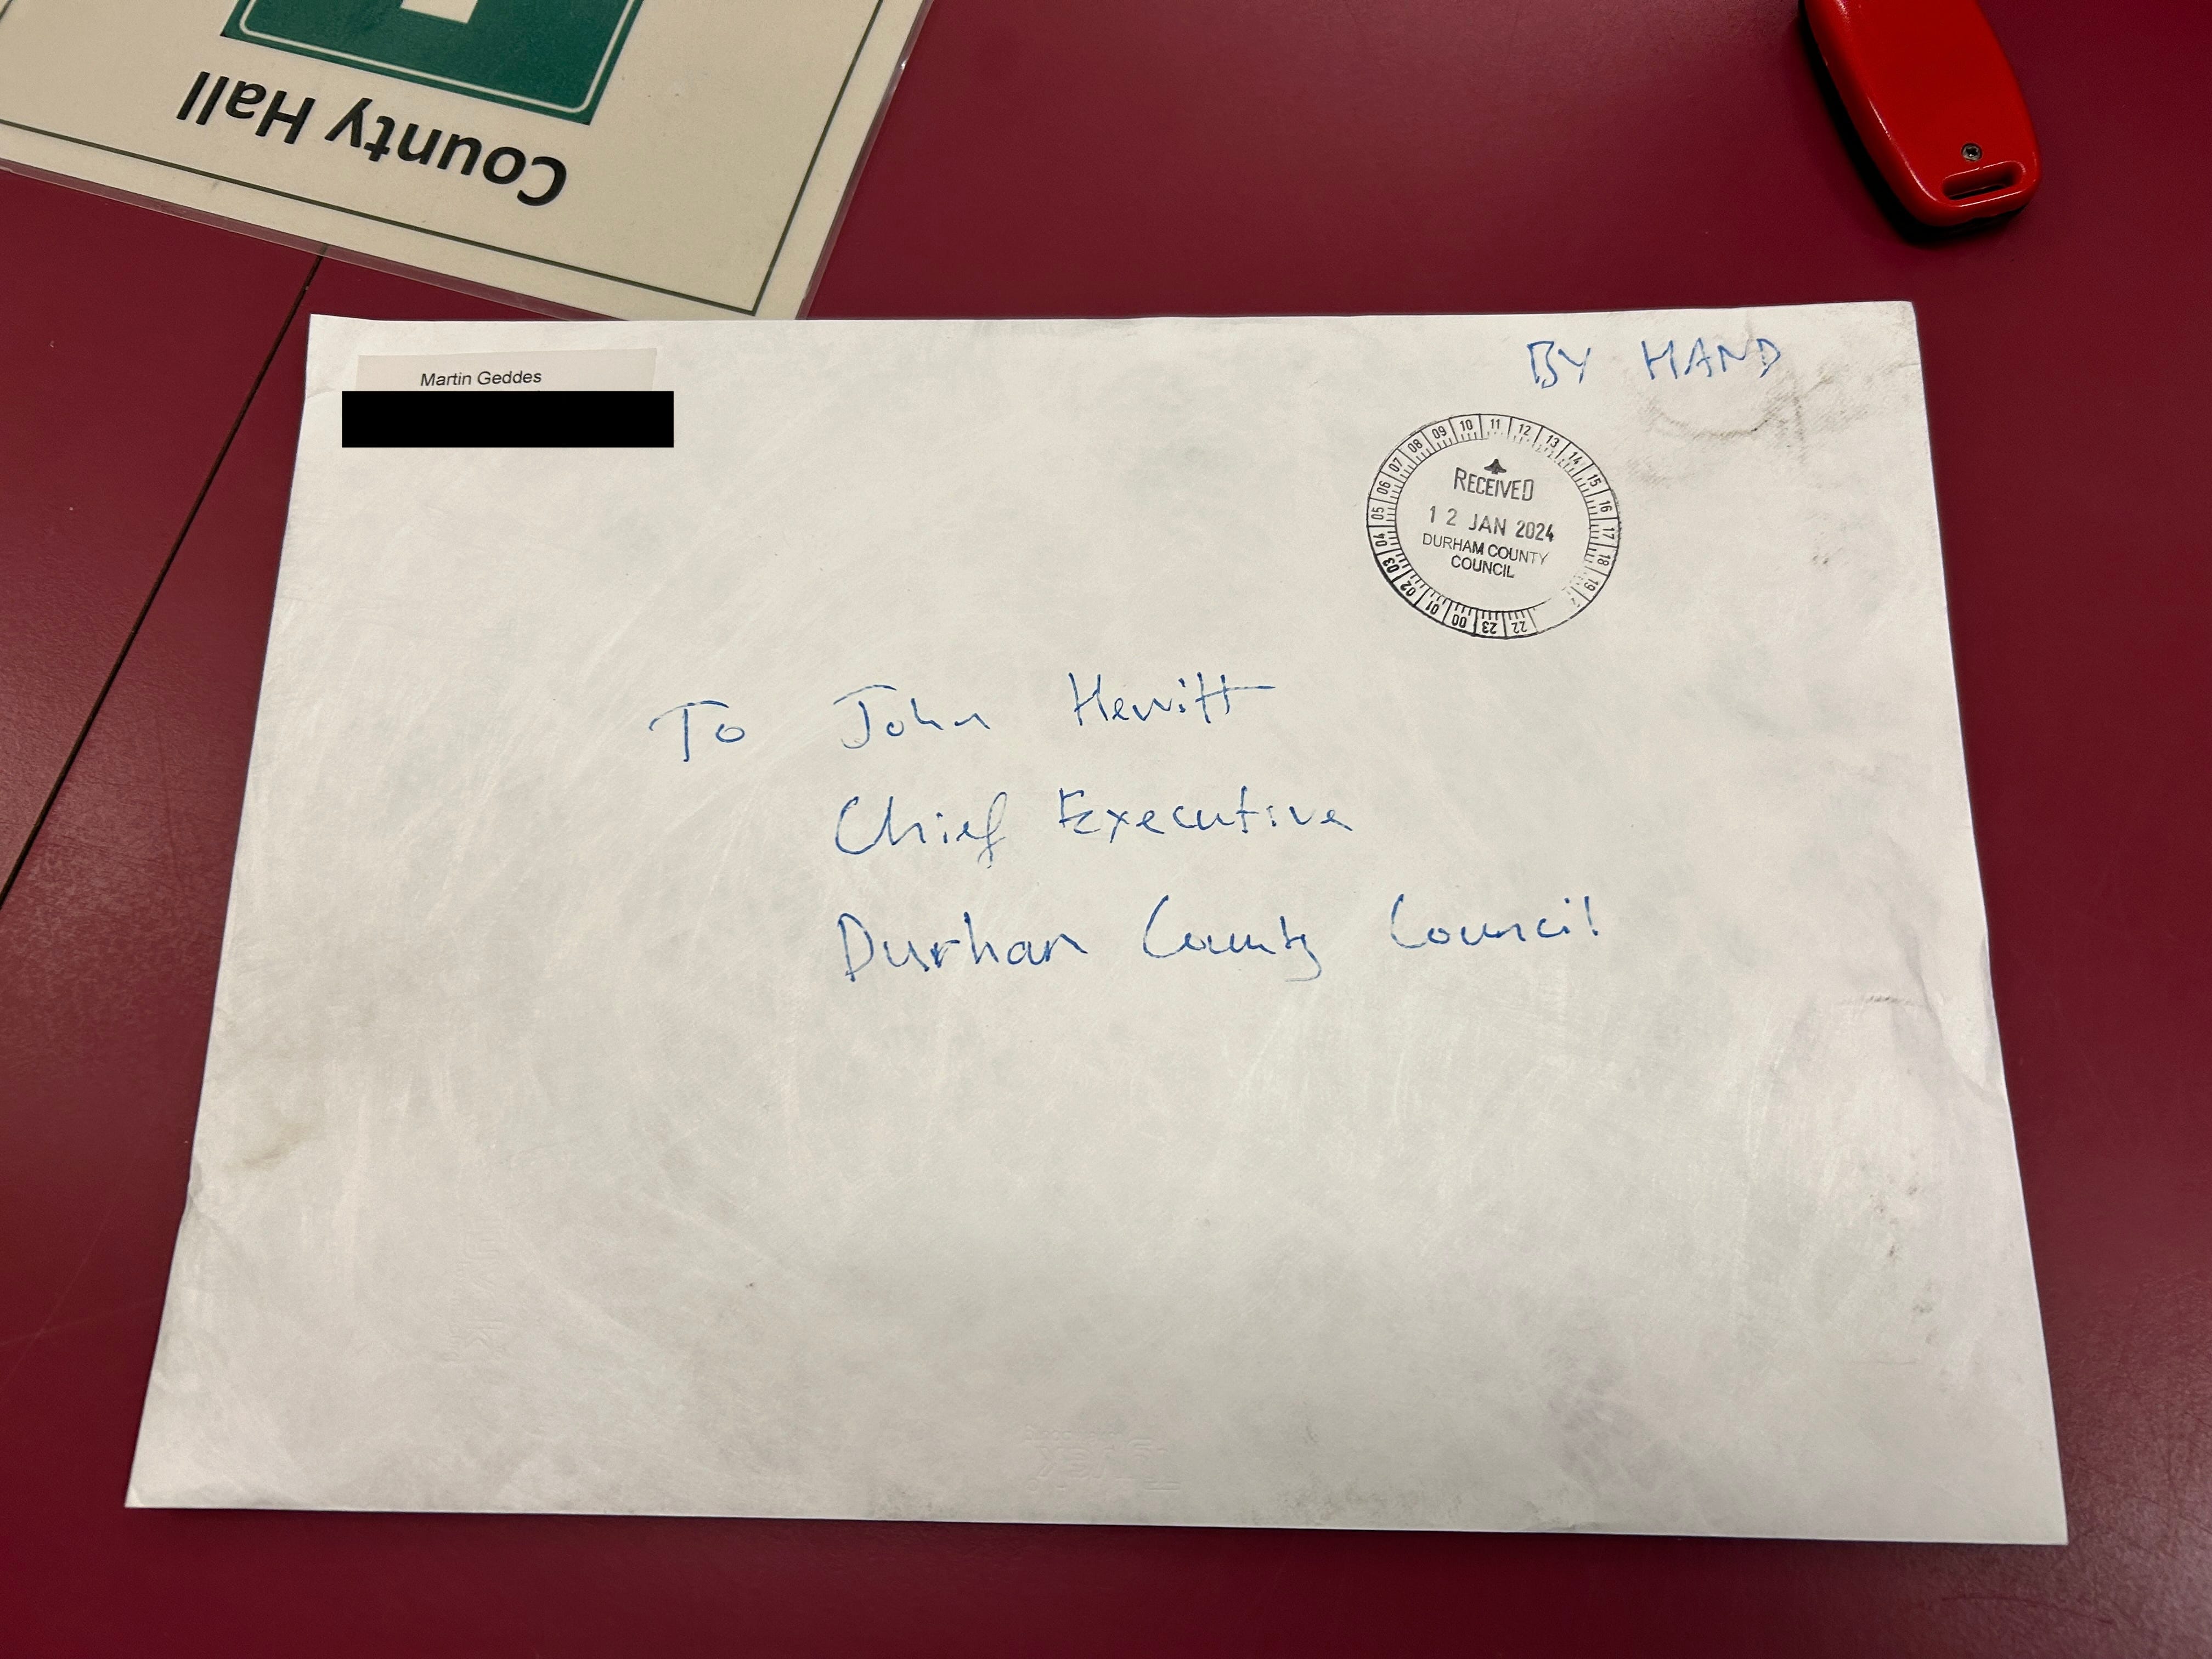 County Hall
Martin Geddes
BY HAND
09 10 11 12 13 14 15 16 17 18 19
22 23 00 01 02 03 04 05 06 07 08
RECEIVED
12 JAN 2024
DURHAM COUNTY
COUNCIL
To John Hewitt
Chief Executive
Durham County Council